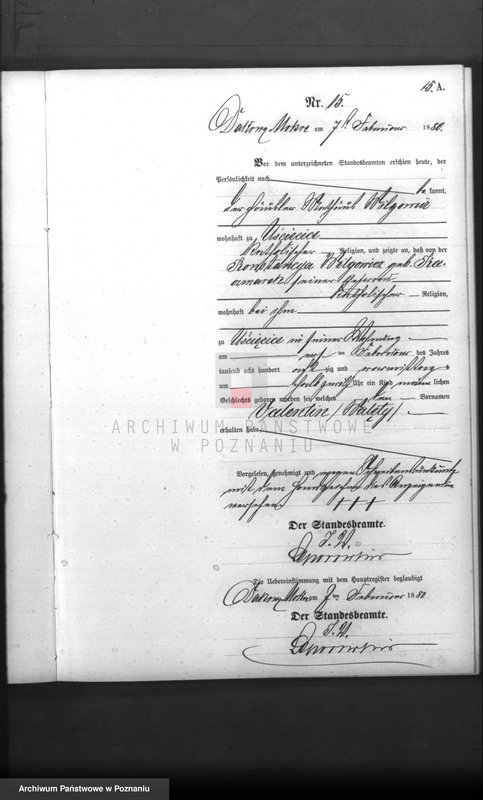 15. A.
Nr. 15.
Dakowy Mokre am 7ten Februar 1880.
Vor dem unterzeichneten Standesbeamten erschien heute, der
Persönlichkeit nach be kannt,
der Häusler Mathäus
wohnhaft zu Uścięcice
katholischer Religion, und zeigte an, daß von der
Konstancya geb.
seiner Ehefrau
katholischer Religion,
wohnhaft bei ihm
zu Uścięcice in seiner Wohnung
am Februar des Jahres
tausend acht hundert acht zig und vormittags
um Uhr ein Kind männ lichen
Geschlechts geboren worden sei, welches den Vornamen
Valentin /Walęty/
erhalten habe.
Vorgelesen, genehmigt und wegen Schreibensunkunde
mit dem Handzeichen des Anzeigenden
versehen. +++
Der Standesbeamte.
I. V.
Die Uebereinstimmung mit dem Hauptregister beglaubigt
Dakowy Mokre am 7 ten Februar 1880
Der Standesbeamte.
I. V.
ARCHIWUM PAŃSTWOWE
W POZNANIU
Archiwum Państwowe w Poznaniu